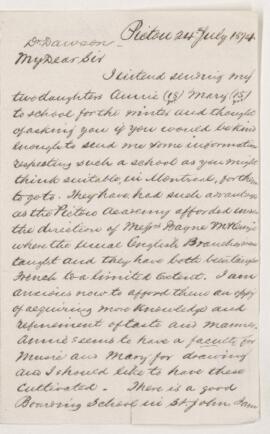 Pictou 24 July 1874
Dr Dawson
My Dear Sir
I intend sending my
two daughters Annie (18) Mary (15)
to school for the winter and thought
of asking you if you would be kind
enough to send me some information
respecting such a school as you might
think suitable, in Montreal, for them
to go to. They have had such advantage
as the Pictou Academy afforded under
the direction of Messrs Bayne McKenzie
where the usual English Branches were
taught and they have both been taught
French to a limited extent. I am
anxious now to afford them an oppy
of acquiring more knowledge and
refinement of taste and manner.
Annie seems to have a faculty for
Music and Mary for drawing
and I should like to have these
cultivated. There is a good
Boarding School in St John I am